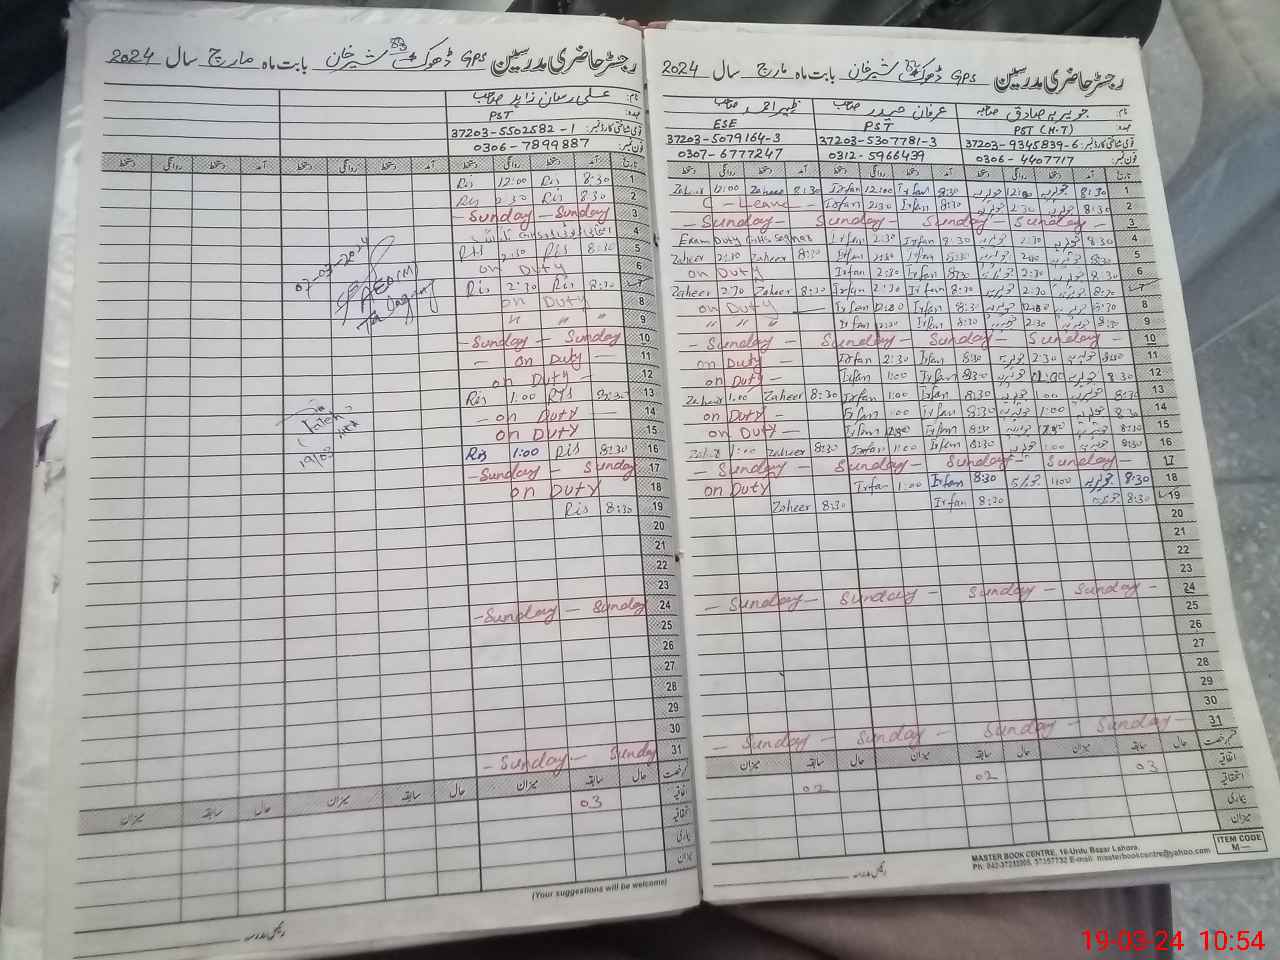 رجسٹر حاضری مدرسین GPS ڈھوک شیر خان بابت ماہ مارچ سال 2024
نام: علی رسان زاہد صاحب
عہدہ: PST
قومی شناختی کارڈ نمبر: 37203-5502582-1
فون نمبر: 0306-7899887
تاریخ آمد دستخط روانگی دستخط آمد دستخط روانگی دستخط آمد دستخط روانگی دستخط
1 8:30 Ris 12:00 Ris
2 8:30 Ris 2:30 Ris
3 - Sunday - Sunday
4
5 8:30 Ris 2:30 Ris
6 on Duty
7 8:30 Ris 2:30 Ris
8 on Duty
9 " " "
10 - Sunday - Sunday
11 - on Duty -
12 on Duty -
13 8:30 Ris 1:00 Ris
14 - on Duty
15 on Duty
16 8:30 Ris 1:00 Ris
17 - Sunday - Sunday
18 on Duty
19 8:30 Ris
20
21
22
23
24 - Sunday - Sunday
25
26
27
28
29
30
31 - Sunday - Sunday
07-03-2024
AEO (M)
Talagang
19/03
قسم رخصت حال سابقہ میزان حال سابقہ میزان حال سابقہ میزان
اتفاقیہ 03
استحقاقیہ
بیماری
میزان
(Your suggestions will be welcome)
رئیس مدرسہ
رجسٹر حاضری مدرسین GPS ڈھوک شیر خان بابت ماہ مارچ سال 2024
نام: جویریہ صادق صاحبہ عرفان حیدر صاحب ظہیر احمد صاحب
عہدہ: PST (H.T) PST ESE
قومی شناختی کارڈ نمبر: 37203-9345839-6 37203-5307781-3 37203-5079164-3
فون نمبر: 0306-4407717 0312-5966439 0307-6777247
تاریخ آمد دستخط روانگی دستخط آمد دستخط روانگی دستخط آمد دستخط روانگی دستخط
1 8:30 جویریہ 12:00 جویریہ 8:30 Irfan 12:00 Irfan 8:30 Zaheer 12:00 Zaheer
2 8:30 جویریہ 2:30 جویریہ 8:30 Irfan 2:30 Irfan C - Leave
3 - Sunday - Sunday - Sunday - Sunday -
4 8:30 جویریہ 2:30 جویریہ 8:30 Irfan 2:30 Irfan Exam Duty GHS Saghar
5 8:30 جویریہ 2:30 جویریہ 8:30 Irfan 2:30 Irfan 8:30 Zaheer 2:30 Zaheer
6 8:30 جویریہ 2:30 جویریہ 8:30 Irfan 2:30 Irfan on Duty
7 8:30 جویریہ 2:30 جویریہ 8:30 Irfan 2:30 Irfan 8:30 Zaheer 2:30 Zaheer
8 8:30 جویریہ 12:00 جویریہ 8:30 Irfan 12:00 Irfan on Duty -
9 8:30 جویریہ 2:30 جویریہ 8:30 Irfan 2:30 Irfan " " "
10 - Sunday - Sunday - Sunday - Sunday -
11 8:30 جویریہ 2:30 جویریہ 8:30 Irfan 2:30 Irfan on Duty -
12 8:30 جویریہ 1:00 جویریہ 8:30 Irfan 1:00 Irfan on Duty -
13 8:30 جویریہ 1:00 جویریہ 8:30 Irfan 1:00 Irfan 8:30 Zaheer 1:00 Zaheer
14 8:30 جویریہ 1:00 جویریہ 8:30 Irfan 1:00 Irfan on Duty -
15 8:30 جویریہ جویریہ 8:30 Irfan Irfan on Duty -
16 8:30 جویریہ 1:00 جویریہ 8:30 Irfan 1:00 Irfan 8:30 Zaheer 1:00 Zaheer
17 - Sunday - Sunday - Sunday - Sunday -
18 8:30 جویریہ 1:00 جویریہ 8:30 Irfan 1:00 Irfan on Duty
19 8:30 جویریہ 8:30 Irfan 8:30 Zaheer
20
21
22
23
24 - Sunday - Sunday - Sunday - Sunday -
25
26
27
28
30
31 - Sunday - Sunday - Sunday - Sunday -
قسم رخصت حال سابقہ میزان حال سابقہ میزان حال سابقہ میزان
اتفاقیہ 03 02 02
استحقاقیہ
بیماری
میزان
ITEM CODE
M—
MASTER BOOK CENTRE, 16-Urdu Bazar Lahore.
E-mail: masterbookcentre@yahoo.com
رئیس مدرسہ
19-03-24 10:54